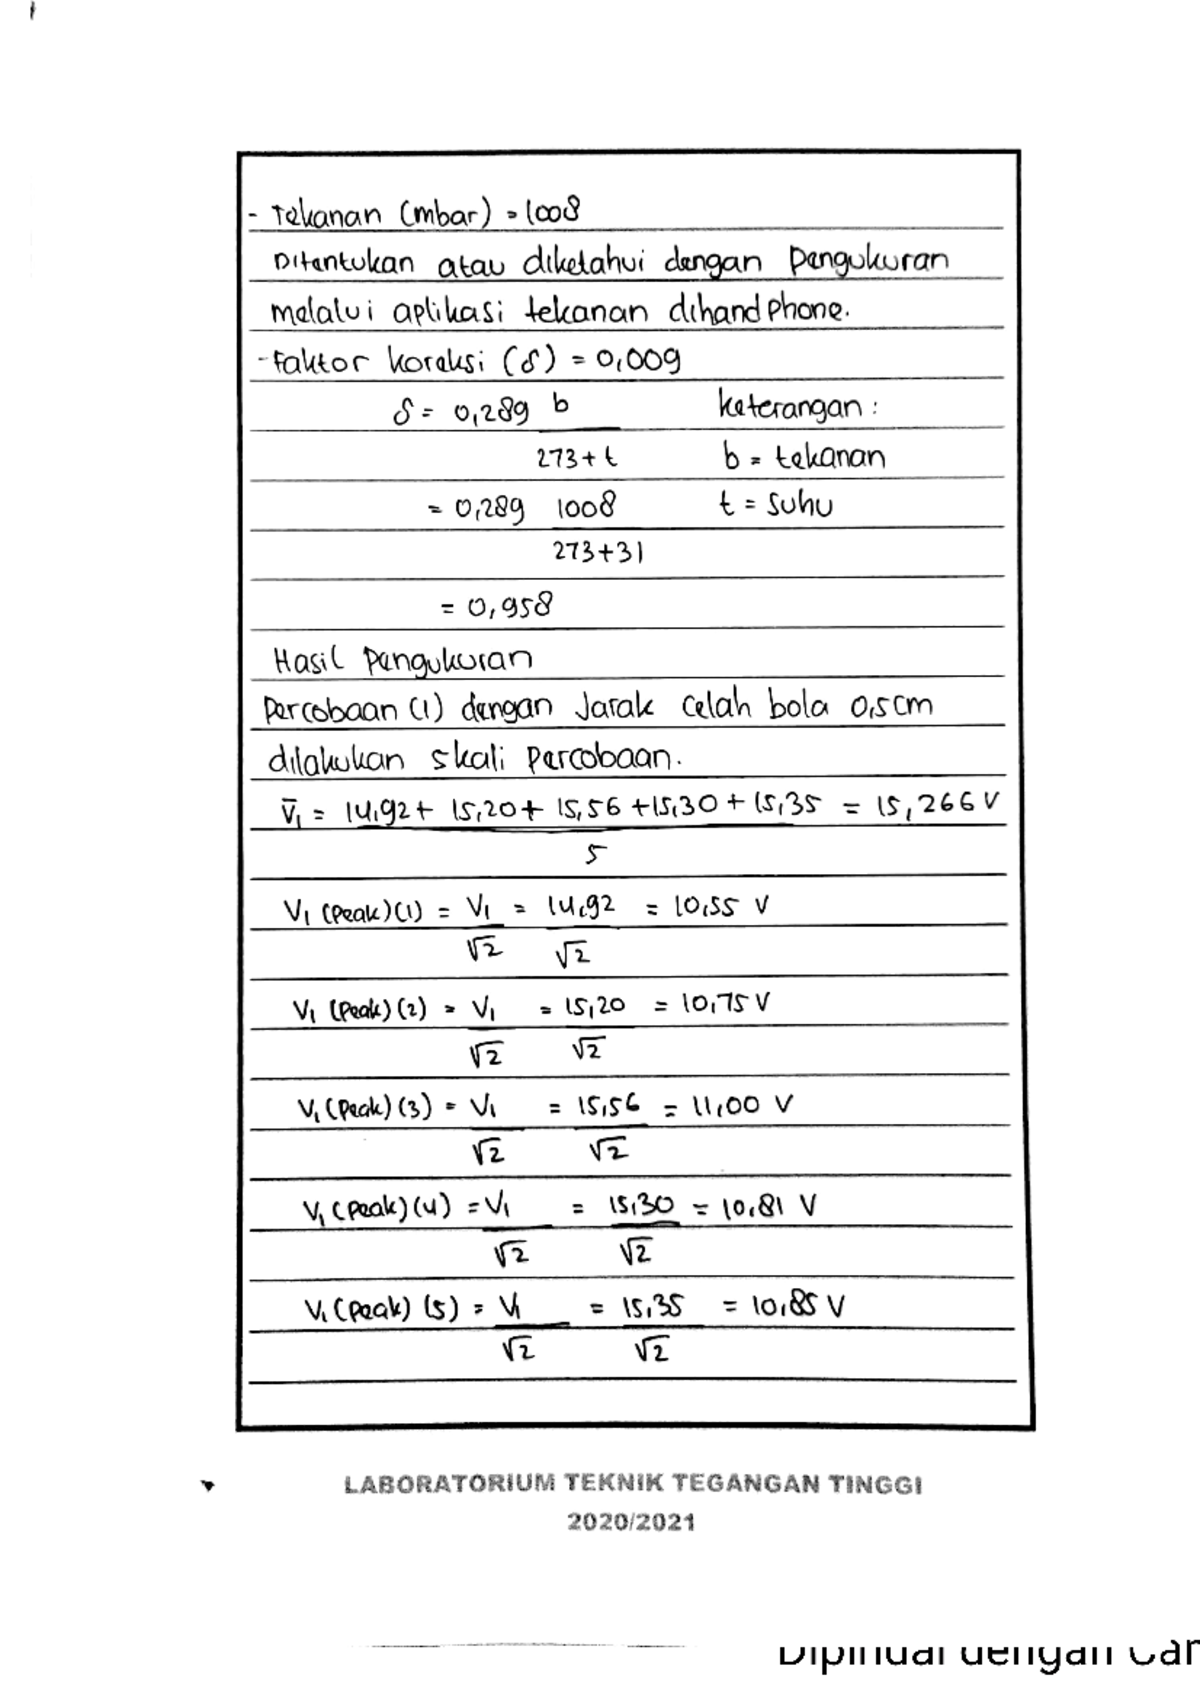 - Tekanan (mbar) = 1008
Ditentukan atau diketahui dengan Pengukuran
melalui aplikasi tekanan dihandphone.
- Faktor koreksi (δ) = 0,009
δ = 0,289 b keterangan :
273 + t b = tekanan
= 0,289 1008 t = suhu
273+31
= 0,958
Hasil Pengukuran
Percobaan (1) dengan Jarak Celah bola 0,5cm
dilakukan 5kali Percobaan.
V̄₁ = 14,92 + 15,20 + 15,56 + 15,30 + 15,35 = 15,266 V
5
V₁ (Peak)(1) = V₁ = 14,92 = 10,55 V
√2 √2
V₁ (Peak)(2) = V₁ = 15,20 = 10,75 V
√2 √2
V₁ (Peak)(3) = V₁ = 15,56 = 11,00 V
√2 √2
V₁ (Peak)(4) = V₁ = 15,30 = 10,81 V
√2 √2
V₁ (Peak)(5) = V₁ = 15,35 = 10,85 V
√2 √2
LABORATORIUM TEKNIK TEGANGAN TINGGI
2020/2021